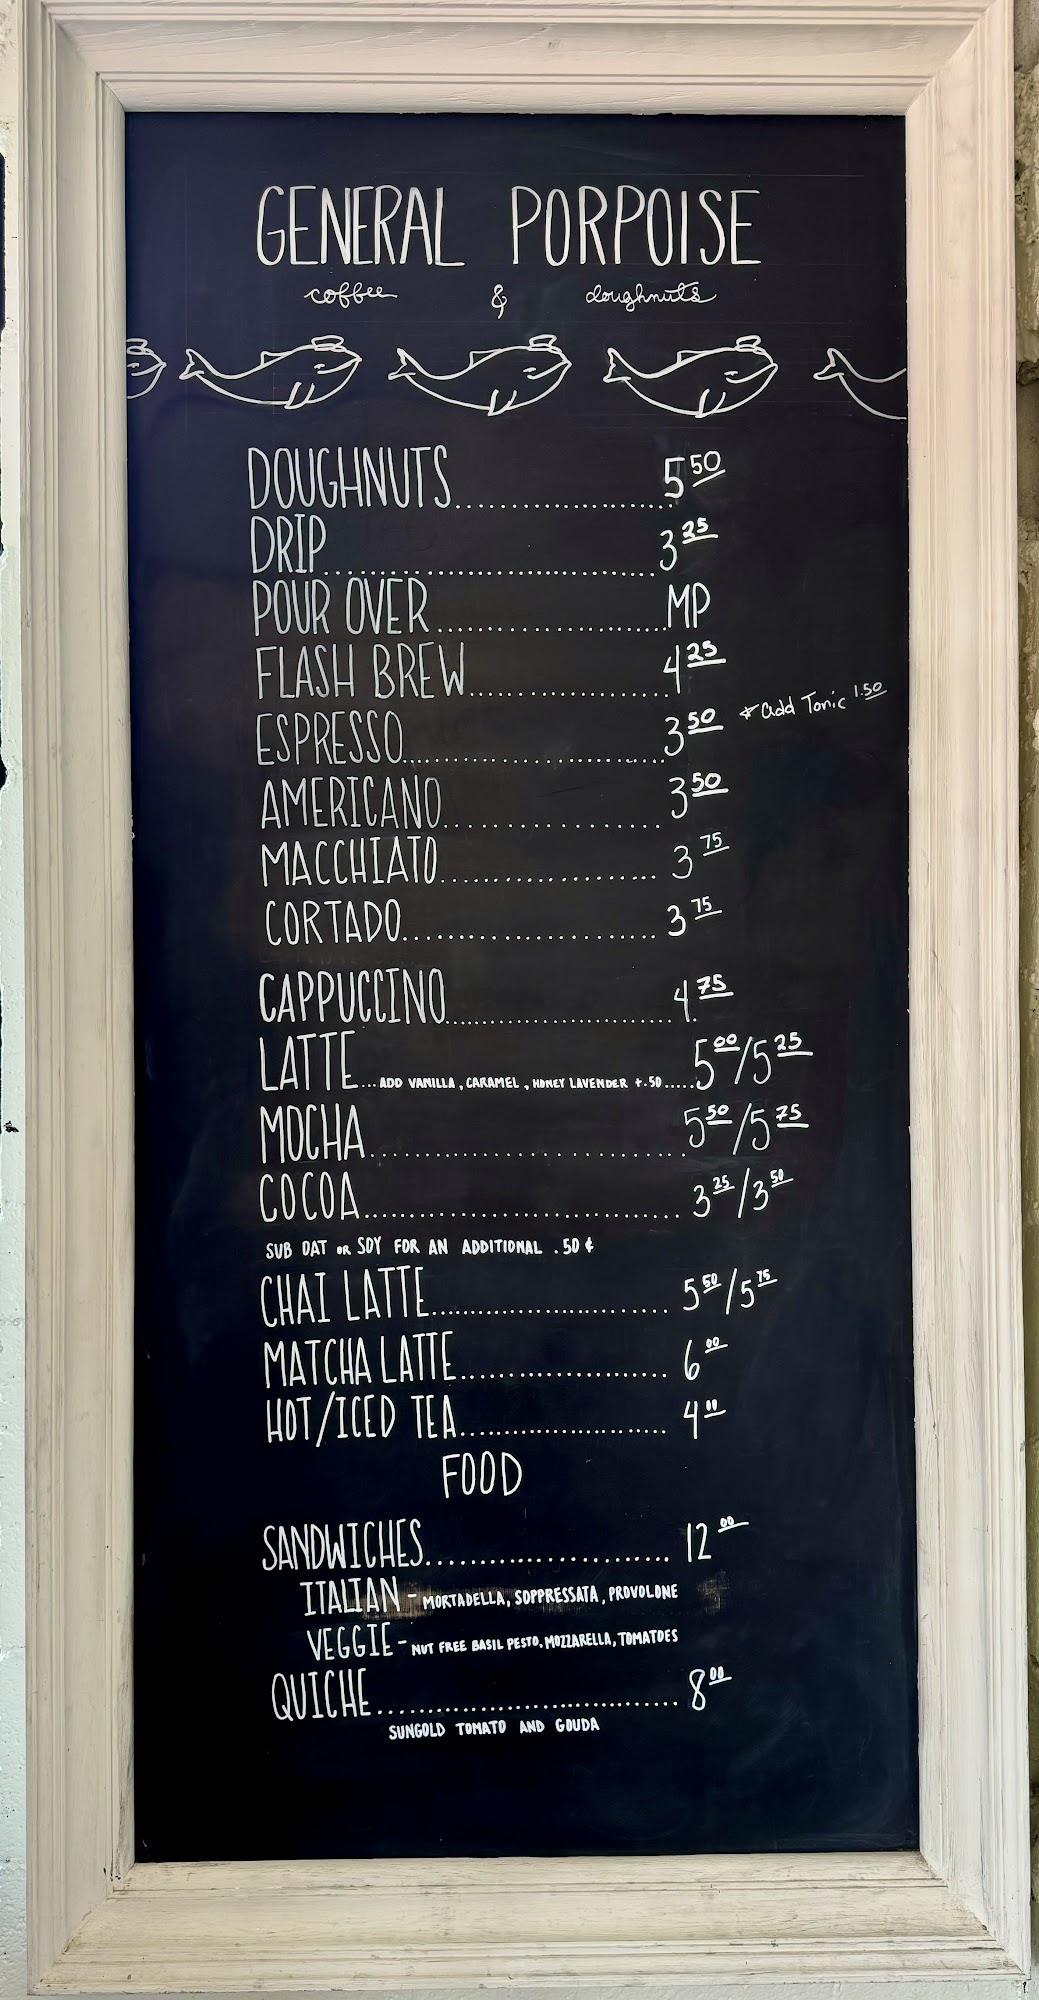 GENERAL PORPOISE
coffee & doughnuts
DOUGHNUTS 5 50
DRIP 3 25
POUR OVER MP
FLASH BREW 4 25
ESPRESSO 3 50 * add Tonic 1.50
AMERICANO 3 50
MACCHIATO 3 75
CORTADO 3 75
CAPPUCCINO 4 75
LATTE ADD VANILLA, CARAMEL, HONEY LAVENDER +.50 5 00/5 25
MOCHA 5 50/5 75
COCOA 3 25/3 50
SUB OAT OR SOY FOR AN ADDITIONAL .50¢
CHAI LATTE 5 50/5 75
MATCHA LATTE 6 00
HOT/ICED TEA 4 00
FOOD
SANDWICHES 12 00
ITALIAN - MORTADELLA, SOPPRESSATA, PROVOLONE
VEGGIE - NUT FREE BASIL PESTO, MOZZARELLA, TOMATOES
QUICHE 8 00
SUNGOLD TOMATO AND GOUDA